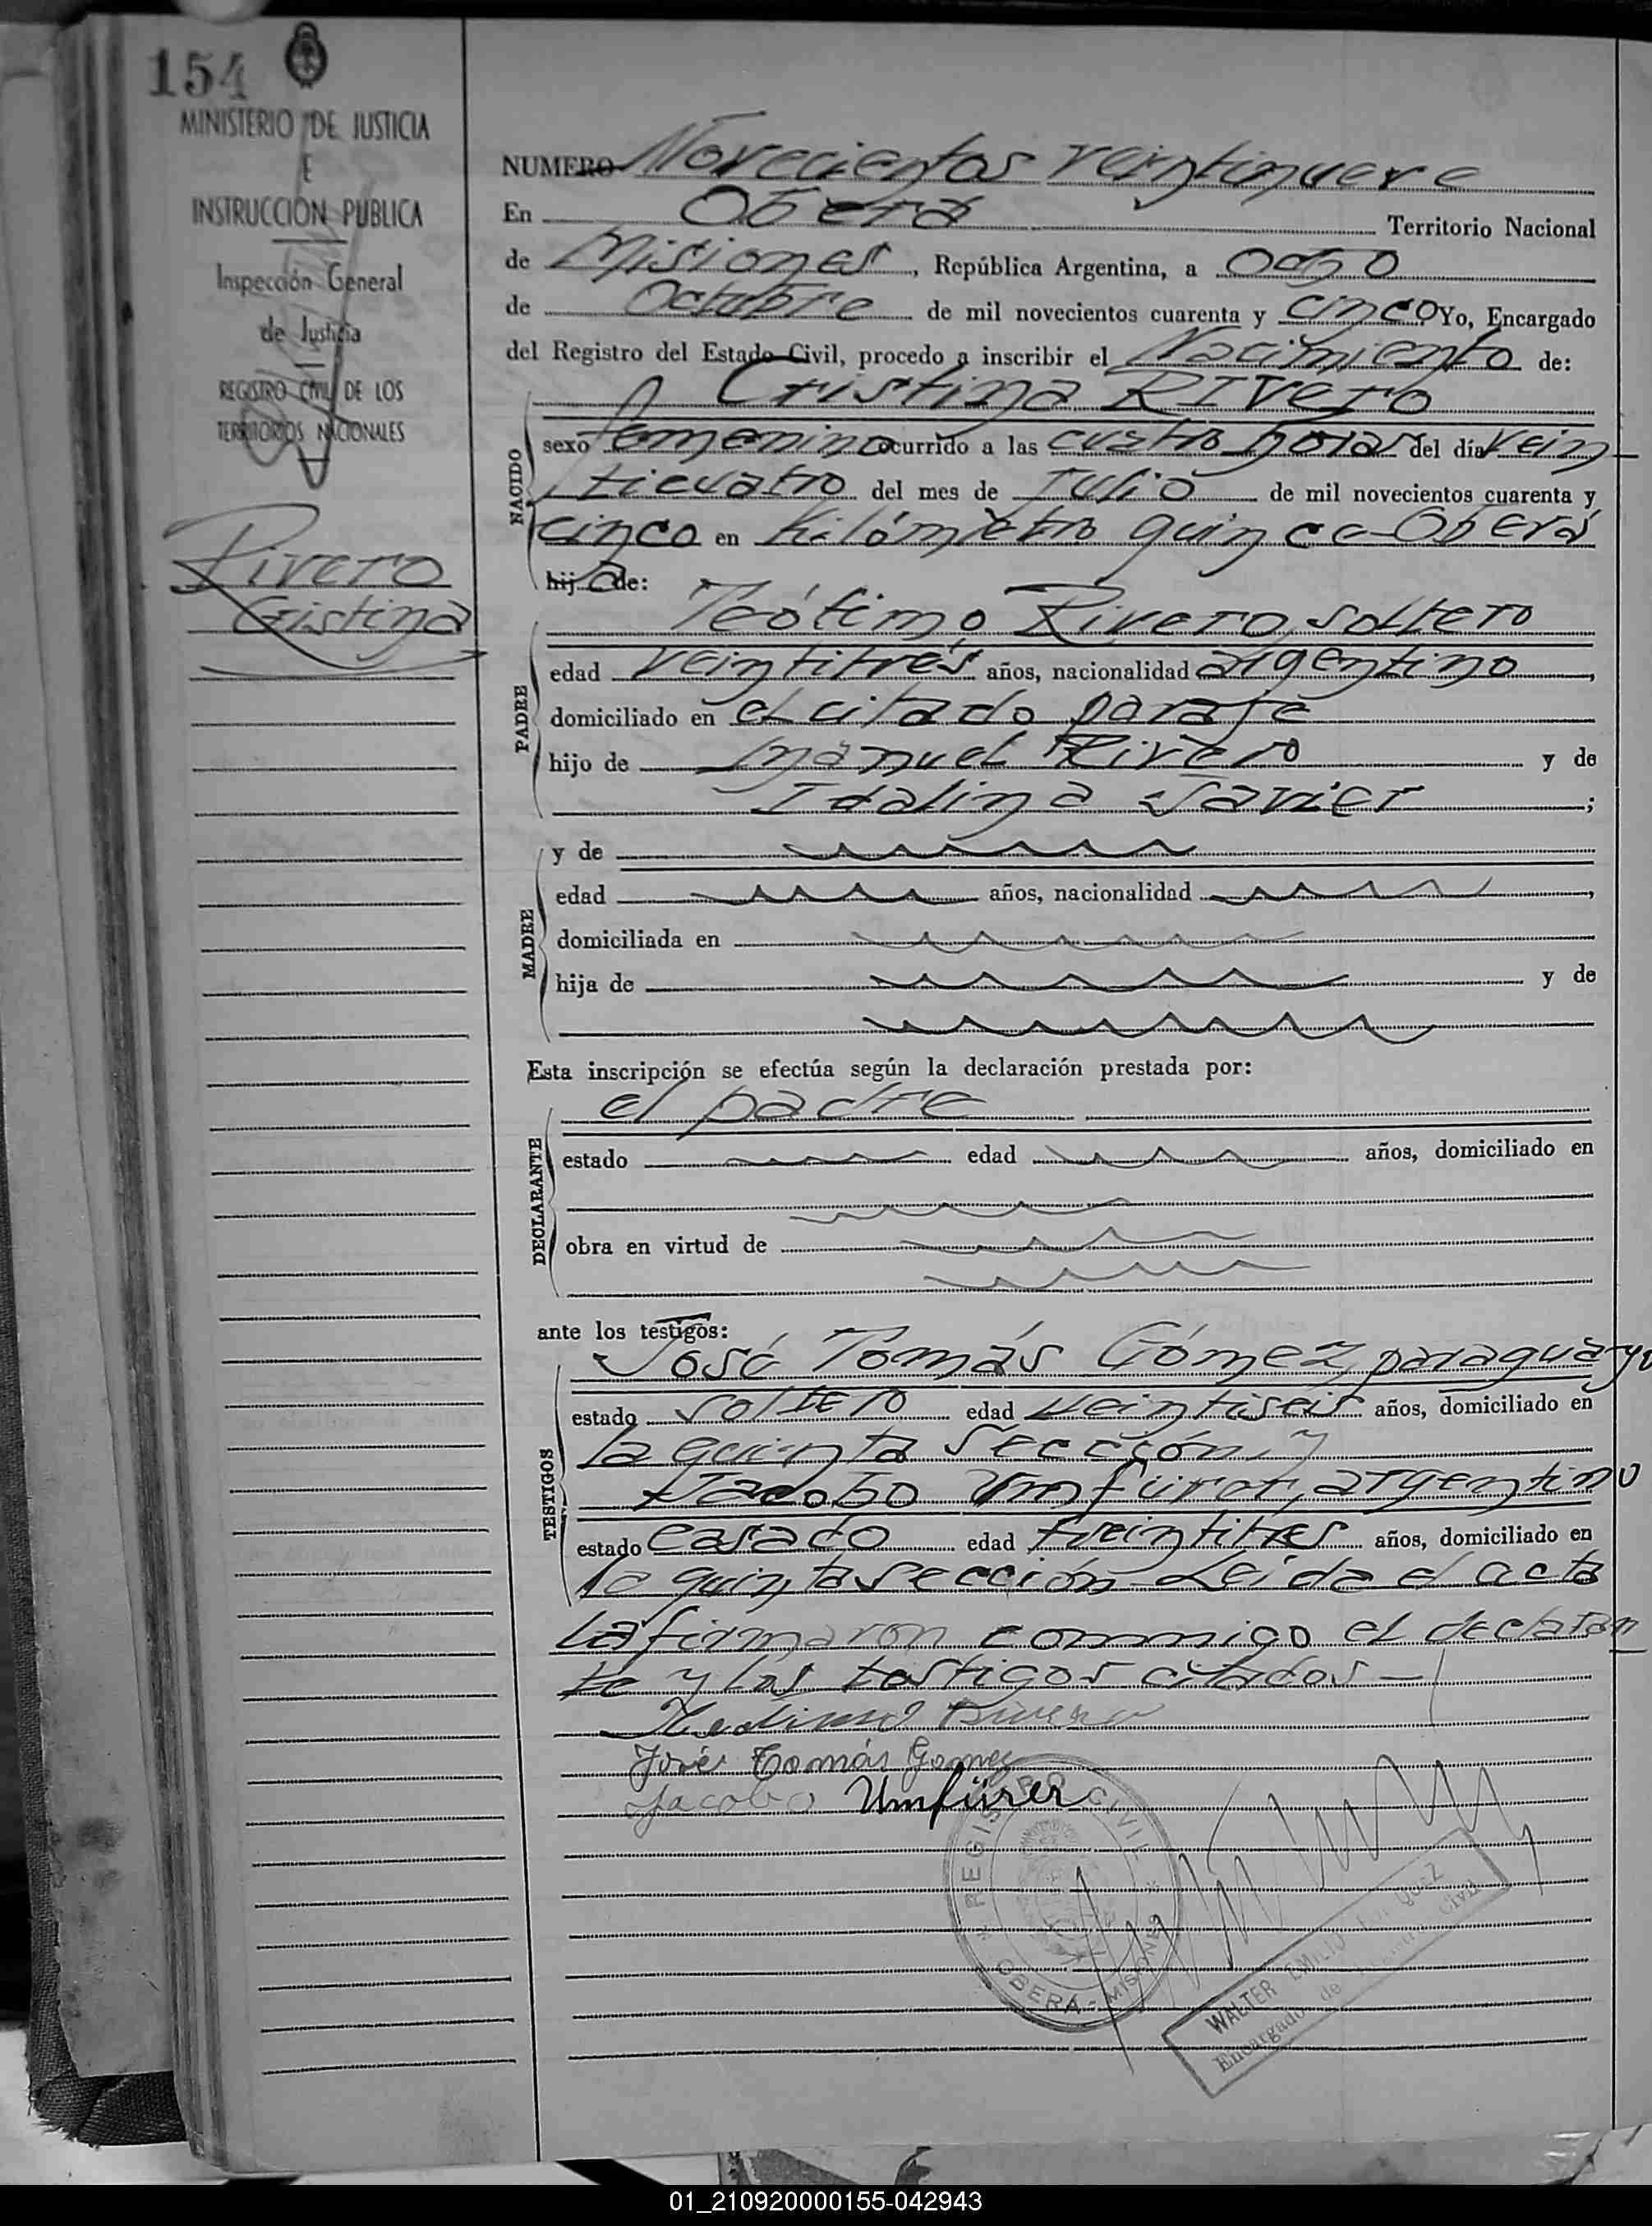 154
MINISTERIO DE JUSTICIA
E
INSTRUCCIÓN PÚBLICA
Inspección General
de Justicia
REGISTRO CIVIL DE LOS
TERRITORIOS NACIONALES
Rivero
Cristina
NUMERO Novecientos veintinueve
En Oberá Territorio Nacional
de Misiones, República Argentina, a Ocho
de Octubre de mil novecientos cuarenta y cinco Yo, Encargado
del Registro del Estado Civil, procedo a inscribir el Nacimiento de:
Cristina Rivero
NACIDO
sexo femenino ocurrido a las cuatro horas del día vein-
ticuatro del mes de Julio de mil novecientos cuarenta y
cinco en Kilómetro quince-Oberá
hija de:
Teótimo Rivero, soltero
PADRE
edad veintitrés años, nacionalidad argentino,
domiciliado en el citado paraje
hijo de Manuel Rivero y de
Idalina Javier;
MADRE
y de
edad años, nacionalidad ,
domiciliada en
hija de y de
Esta inscripción se efectúa según la declaración prestada por:
el padre
DECLARANTE
estado edad años, domiciliado en
obra en virtud de
ante los testigos:
José Tomás Gómez, paraguayo
TESTIGOS
estado soltero edad veintiseis años, domiciliado en
la quinta sección, y
Jacobo Umfürer, argentino
estado casado edad treintitres años, domiciliado en
la quinta sección-Leída el acta
la firmaron conmigo el declaran
te y los testigos citados-
Rivero
José Tomás Gomez
Jacobo Umfürer
REGISTRO CIVIL
OBERÁ - MISIONES
WALTER EMILIO
Encargado de Registro Civil
01_210920000155-042943